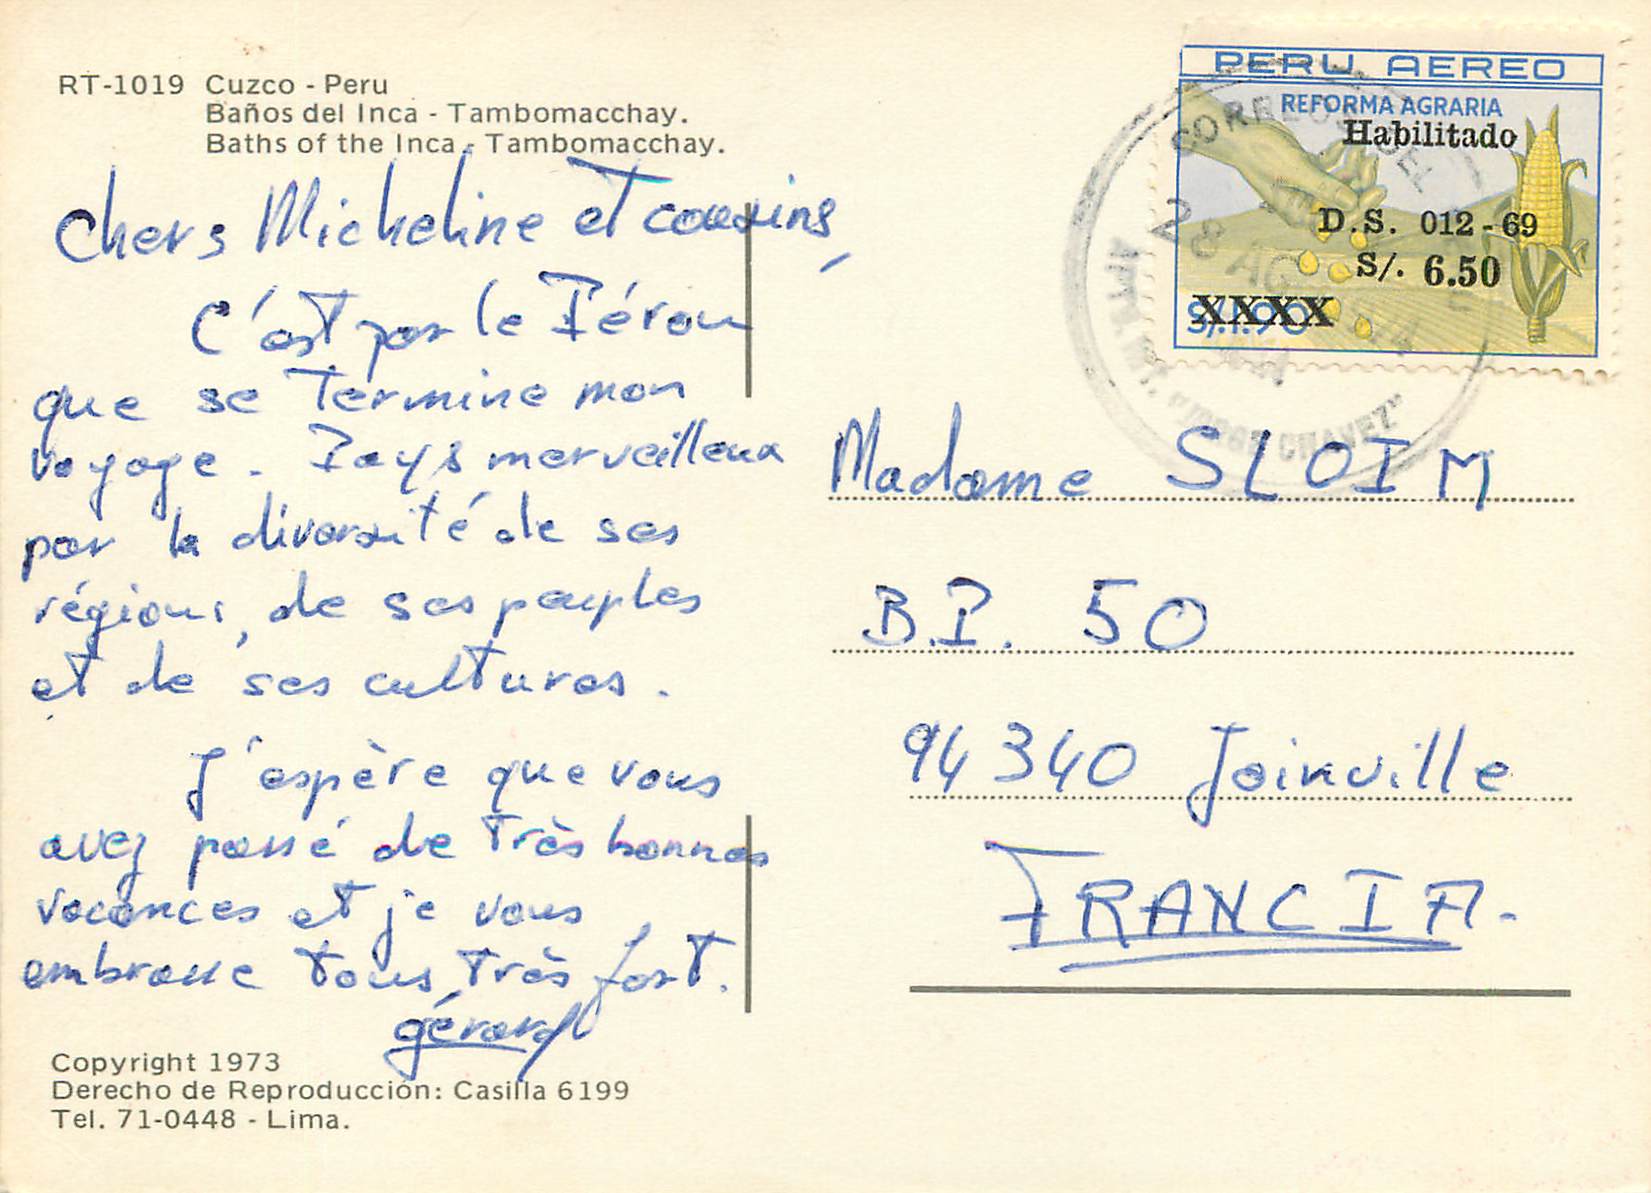 RT-1019 Cuzco - Peru
Baños del Inca - Tambomacchay.
Baths of the Inca - Tambomacchay.
Chers Micheline et cousins,
C'est par le Pérou
que se termine mon
voyage. Pays merveilleux
par la diversité de ses
régions, de ses peuples
et de ses cultures.
J'espère que vous
avez passé de très bonnes
vacances et je vous
embrasse tous très fort.
gérard
Copyright 1973
Derecho de Reproducción: Casilla 6199
Tel. 71-0448 - Lima.
PERU AEREO
REFORMA AGRARIA
Habilitado
D.S. 012-69
S/. 6.50
XXXX
S/.1.90
CORREOS DEL
28 AGO
"JORGE CHAVEZ"
Madame SLOIM
B.P. 50
94340 Joinville
FRANCIA.